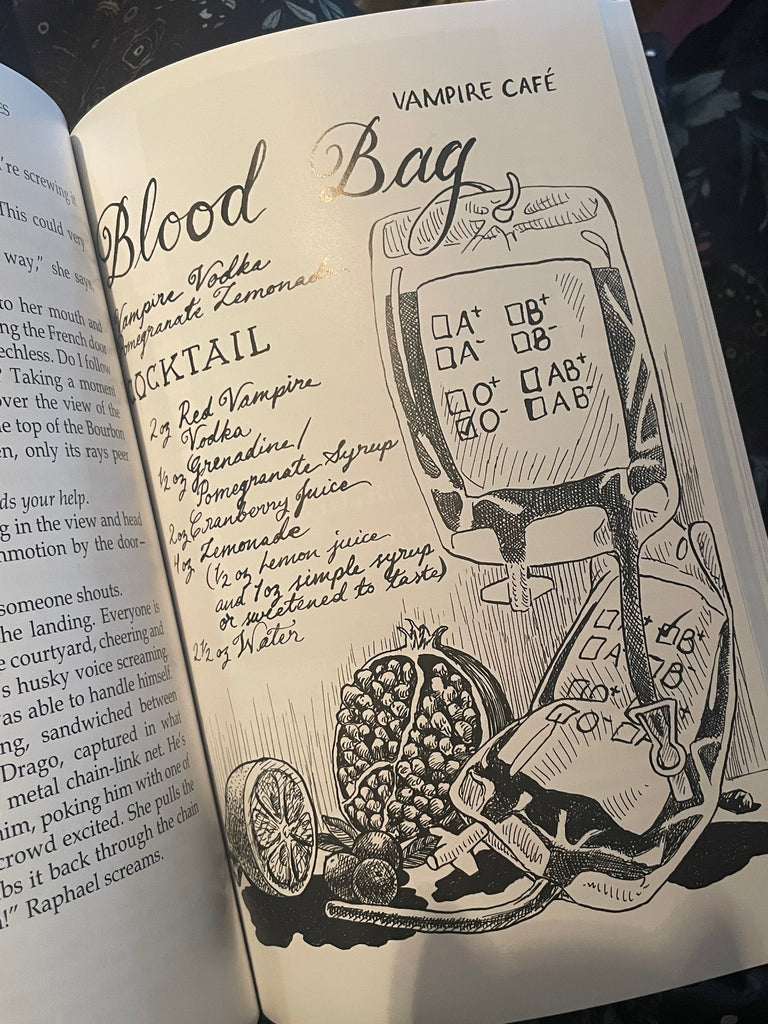 ES
're screwing it
This could very
way," she says,
to her mouth and
ng the French door
eechless. Do I follow
? Taking a moment
over the view of the
he top of the Bourbon
en, only its rays peer
ds your help.
g in the view and head
mmotion by the door–
someone shouts.
he landing. Everyone is
e courtyard, cheering and
s husky voice screaming,
was able to handle himself.
ng, sandwiched between
Drago, captured in what
metal chain-link net. He's
him, poking him with one of
crowd excited. She pulls the
bs it back through the chain
!" Raphael screams.
VAMPIRE CAFÉ
Blood Bag
Vampire Vodka
Pomegranate Lemonade
COCKTAIL
2 oz Red Vampire
Vodka
1/2 oz Grenadine/
Pomegranate Syrup
2oz Cranberry Juice
4oz Lemonade
(1/2 oz lemon juice
and 1oz simple syrup
or sweetened to taste)
2 1/2 oz Water
A+ B+
A- B-
O+ AB+
O- AB-
B+
A B-
O+
O-